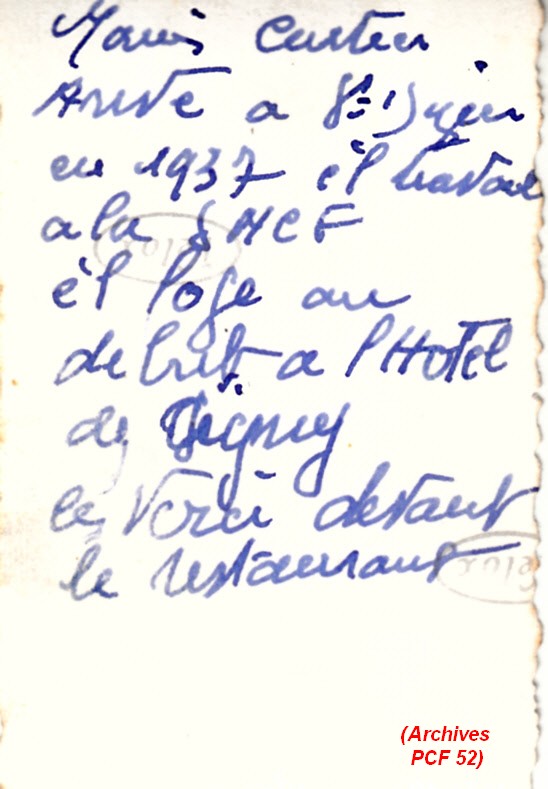 Marius Cartier
Arrive a St Dizier
en 1937 il travail
a la SNCF
il loge au
debut a l'Hotel
de Gigny
le voici devant
le restaurant
Velox
Velox
(Archives
PCF 52)